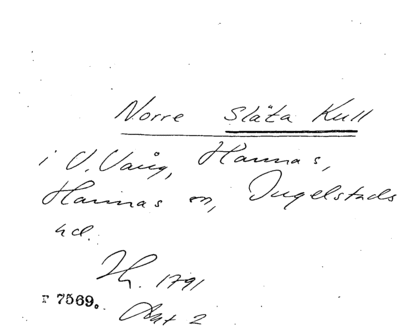 Norre Släta Kull
i V. Vång, Hannas,
Hannas sn, Ingelstads
hd.
Hh. 1791
F 7569. Akt 2